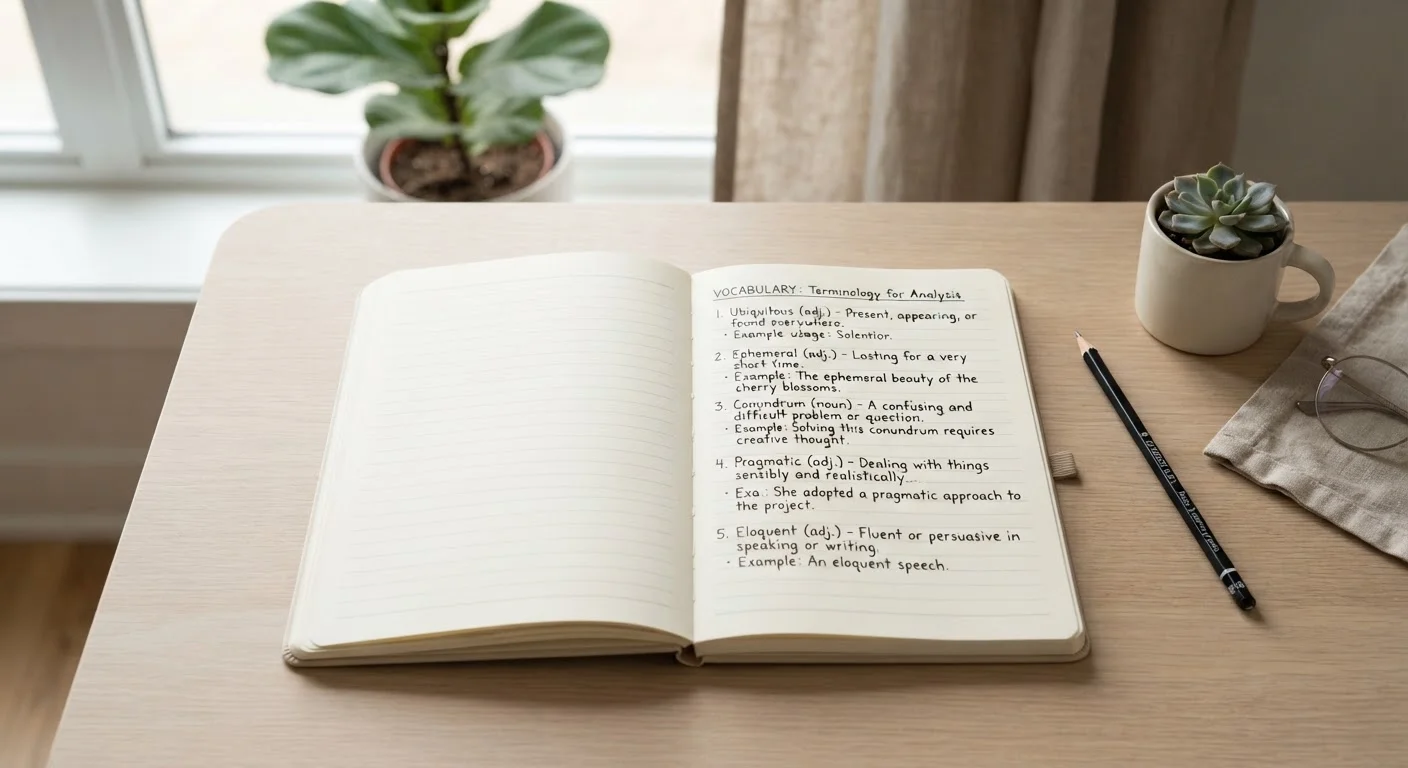 VOCABULARY: Terminology for Analysis
1. Ubiquitous (adj.) – Present, appearing, or
found everywhere.
• Example usage: Solention.
2. Ephemeral (adj.) – Lasting for a very
short time.
• Example: The ephemeral beauty of the
cherry blossoms.
3. Conundrum (noun) – A confusing and
difficult problem or question.
• Example: Solving this conundrum requires
creative thought.
4. Pragmatic (adj.) – Dealing with things
sensibly and realistically...
• Exa.: She adopted a pragmatic approach to
the project.
5. Eloquent (adj.) – Fluent or persuasive in
speaking or writing.
• Example: An eloquent speech.